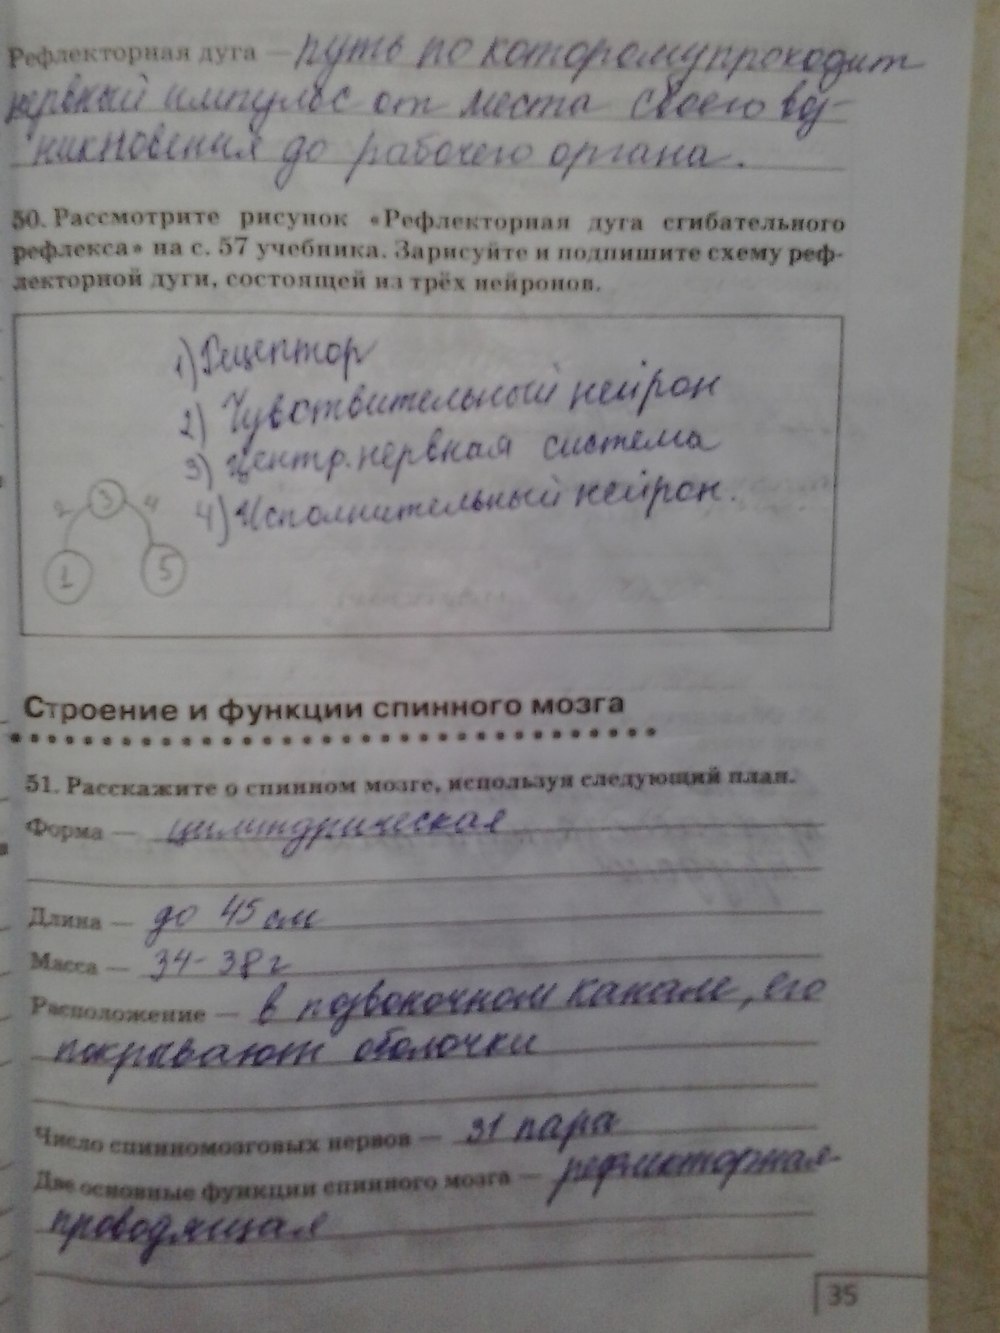 Рефлекторная дуга — путь по которому проходит
нервный импульс от места своего воз-
никновения до рабочего органа.
50. Рассмотрите рисунок «Рефлекторная дуга сгибательного
рефлекса» на с. 57 учебника. Зарисуйте и подпишите схему реф-
лекторной дуги, состоящей из трёх нейронов.
1) Рецептор
2) Чувствительный нейрон
3) Центр. нервная система
4) Исполнительный нейрон.
2 3 4
1 5
Строение и функции спинного мозга
51. Расскажите о спинном мозге, используя следующий план.
Форма — цилиндрическая
Длина — до 45 см
Масса — 34-38 г
Расположение — в позвоночном канале, его
покрывают оболочки
Число спинномозговых нервов — 31 пара
Две основные функции спинного мозга — рефлекторная
проводящая
35